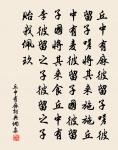 丘中有麻彼留子嗟彼
留子嗟將其來施施丘
中有麥彼留子國彼留
子國將其來食丘中有
李彼留之子彼留之子
貽我佩玖
丘中有麻